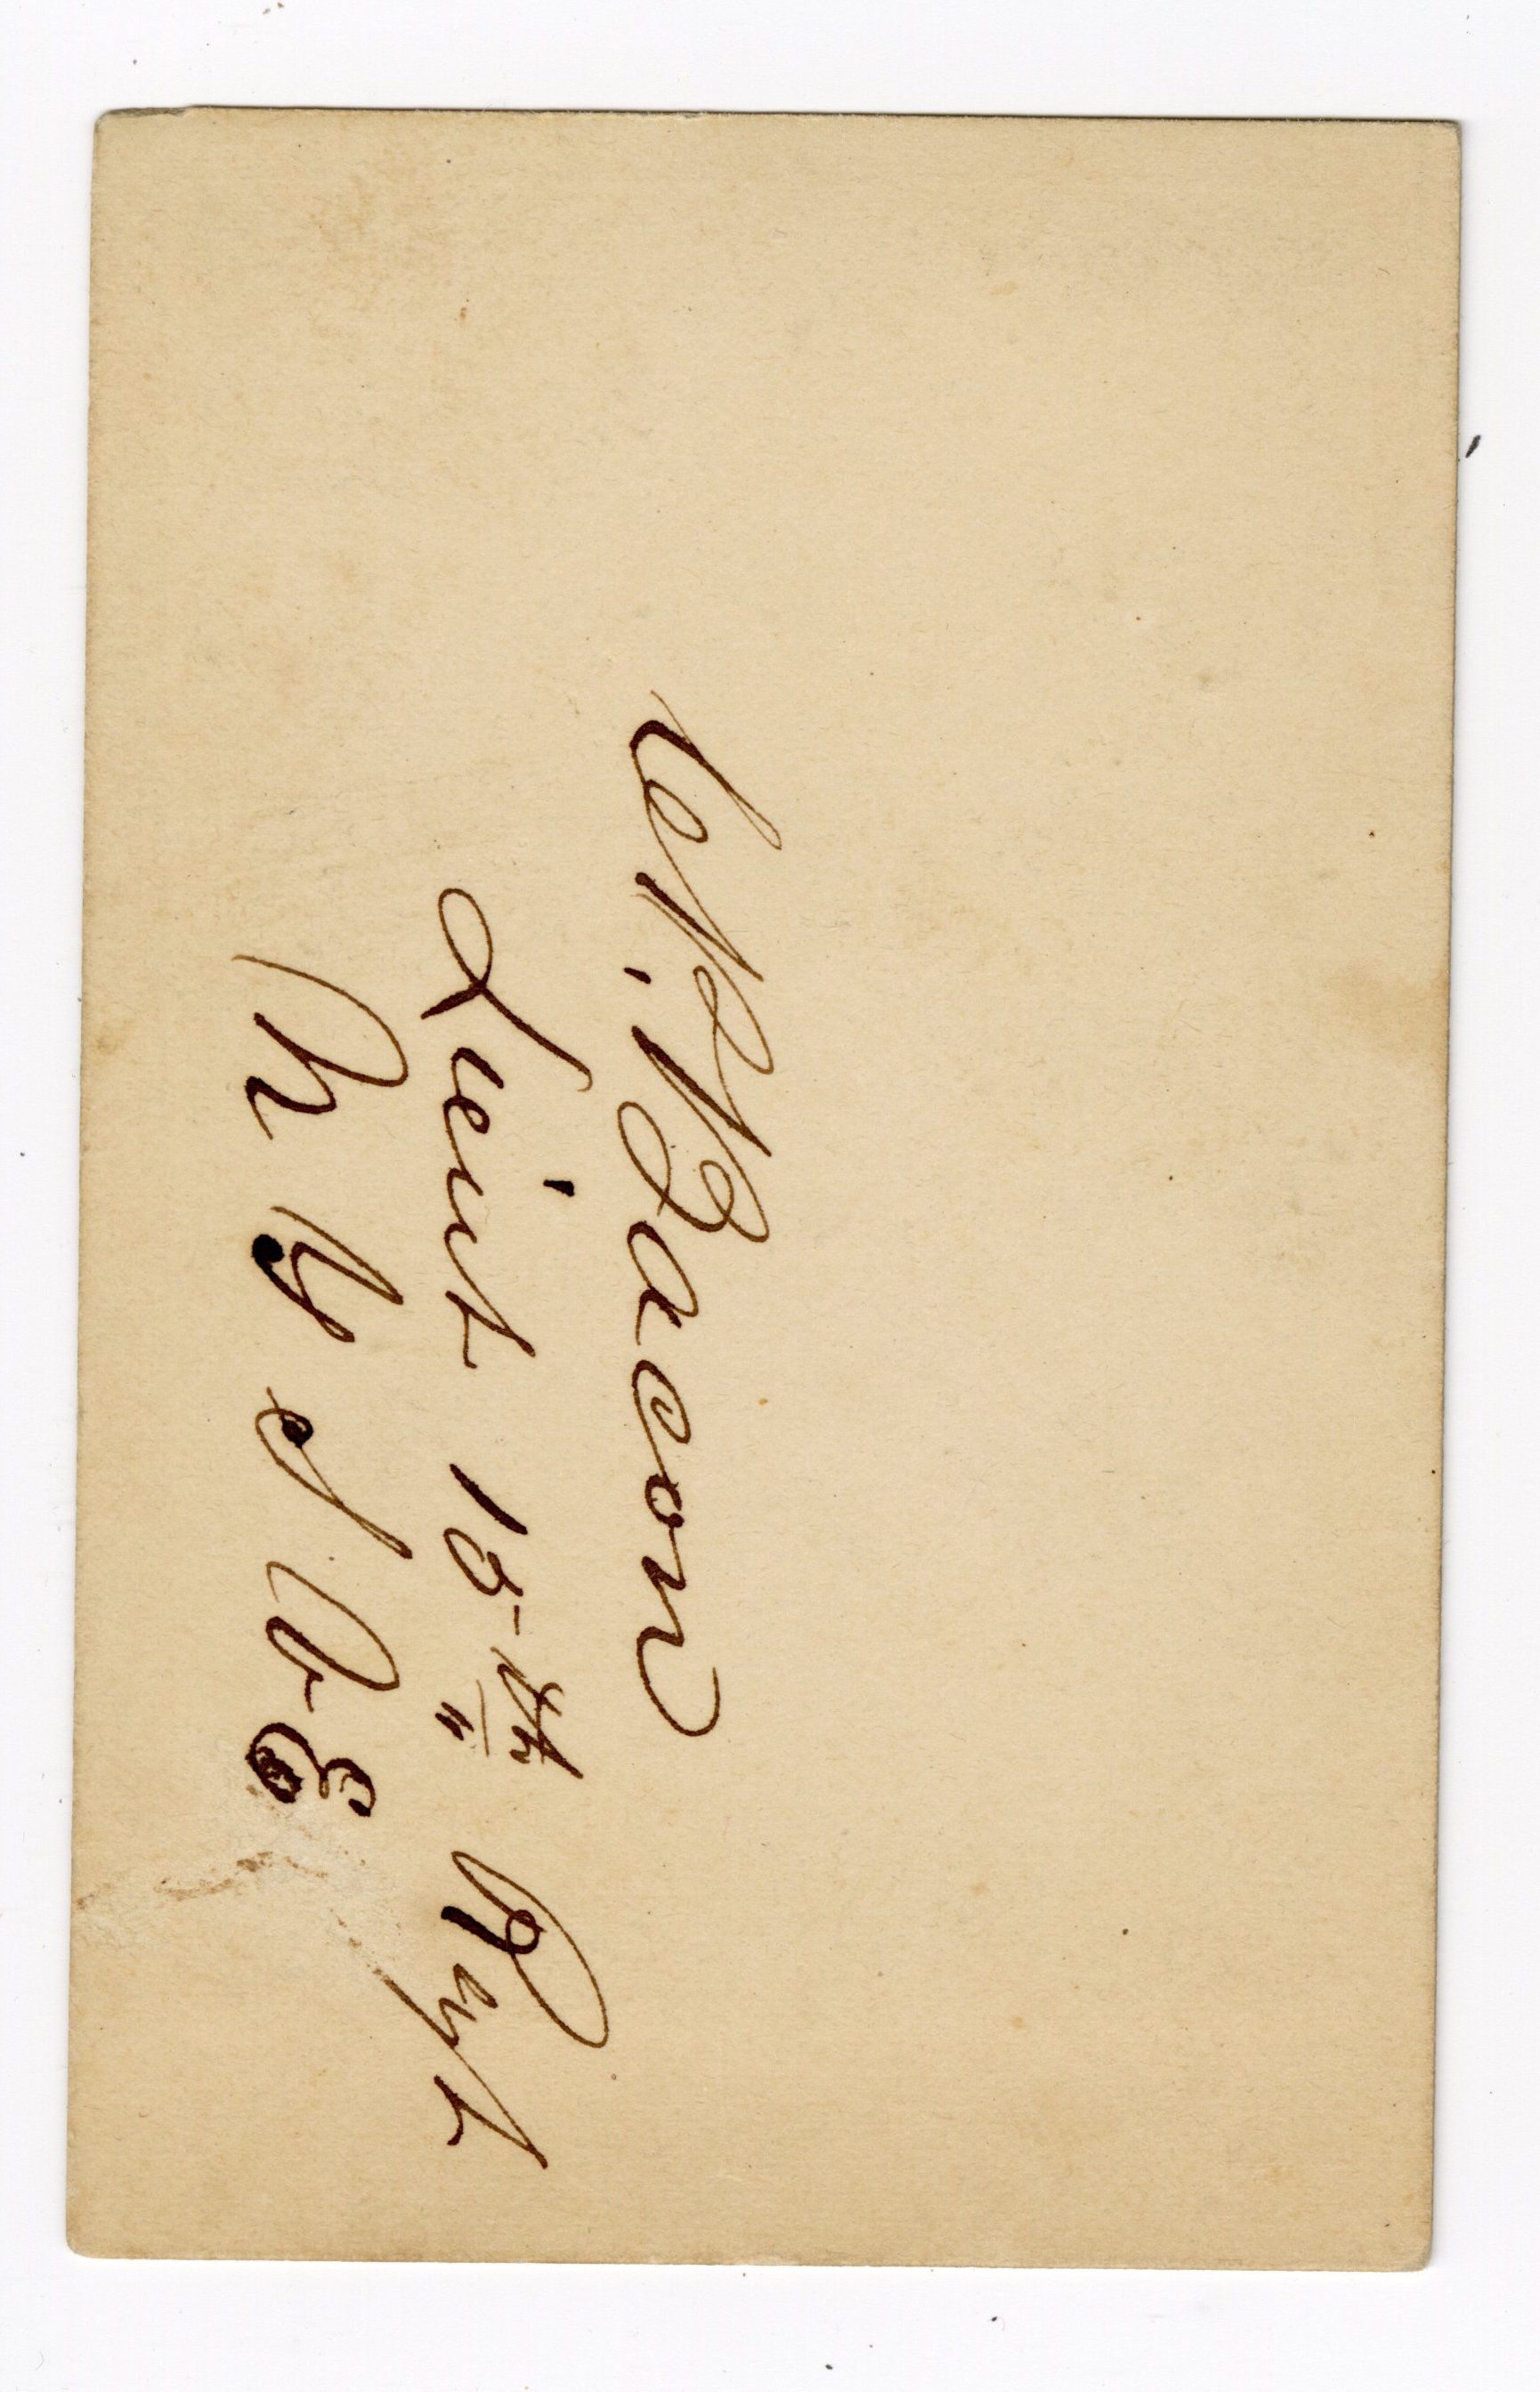 Bacon
Lieut 15th Regt
N Y S V E